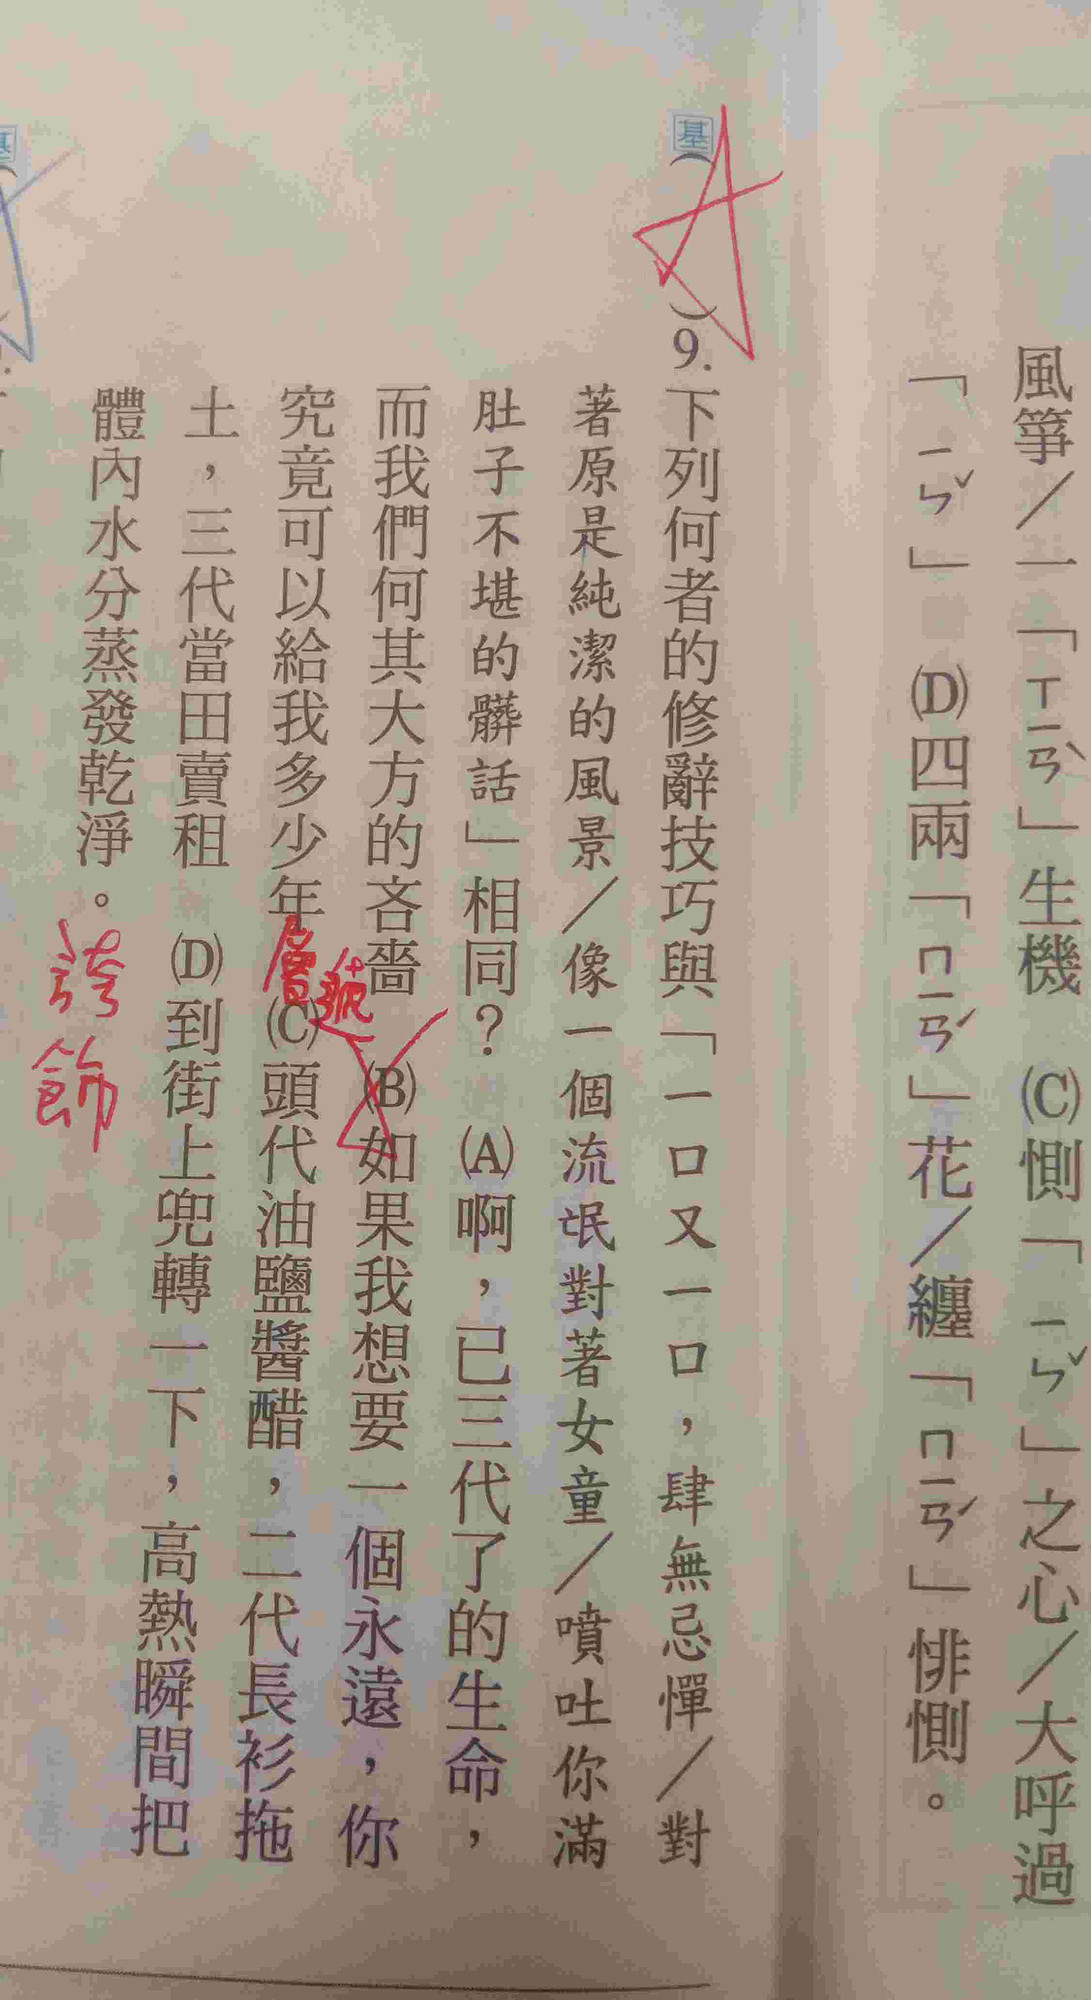 風箏／一「ㄒㄧㄢˋ」生機　(C)惻「ㄧㄣˇ」之心／大呼過
「ㄧㄣˇ」　(D)四兩「ㄇㄧㄢˊ」花／纏「ㄇㄧㄢˊ」悱惻。
基
(A)9.下列何者的修辭技巧與「一口又一口，肆無忌憚／對
著原是純潔的風景／像一個流氓對著女童／噴吐你滿
肚子不堪的髒話」相同？　(A)啊，已三代了的生命，
而我們何其大方的吝嗇　(B)如果我想要一個永遠，你
究竟可以給我多少年　(C)頭代油鹽醬醋，二代長衫拖
層遞
土，三代當田賣租　(D)到街上兜轉一下，高熱瞬間把
體內水分蒸發乾淨。
誇飾
基